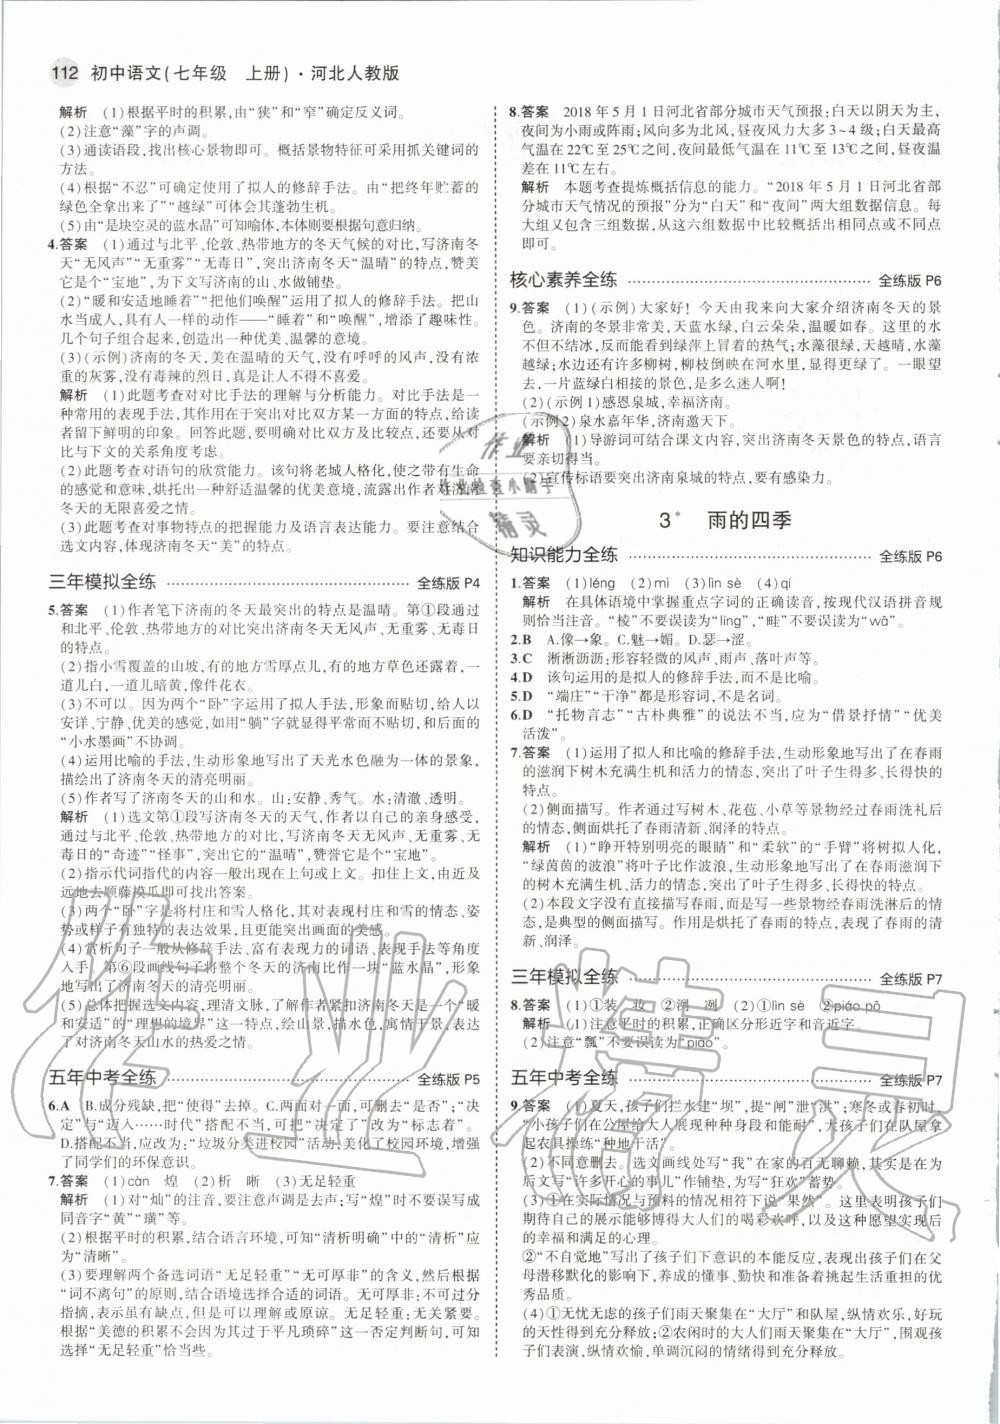 112 初中语文(七年级　上册)·河北人教版
解析　(1)根据平时的积累,由“狭”和“窄”确定反义词。
(2)注意“藻”字的声调。
(3)通读语段,找出核心景物即可。概括景物特征可采用抓关键词的
方法。
(4)根据“不忍”可确定使用了拟人的修辞手法。由“把终年贮蓄的
绿色全拿出来了”“越绿”可体会其蓬勃生机。
(5)由“是块空灵的蓝水晶”可知喻体,本体则要根据句意归纳。
4.答案　(1)通过与北平、伦敦、热带地方的冬天气候的对比,写济南冬
天“无风声”“无重雾”“无毒日”,突出济南冬天“温晴”的特点,赞美
它是个“宝地”,为下文写济南的山、水做铺垫。
(2)“暖和安适地睡着”“把他们唤醒”运用了拟人的修辞手法。把山
水当成人,具有了人的行为——“睡着”和“唤醒”,增添了趣味性。
几个句子组合起来,创造出一种优美、温馨的意境。
(3)(示例)济南的冬天,美在温晴的天气,没有呼呼的风声,没有浓
重的灰雾,没有毒辣的烈日,真是让人不得不喜爱。
解析　(1)此题考查对对比手法的理解与分析能力。对比手法是一
种常用的表现手法,其作用在于突出对比双方某一方面的特点,给读
者留下鲜明的印象。回答此题,要明确对比双方及比较点,还要从对
比与下文的关系角度考虑。
(2)此题考查对语句的欣赏能力。该句将老城人格化,使之带有生命
的感觉和意味,烘托出一种舒适温馨的优美意境,流露出作者对济南
冬天的无限喜爱之情。
(3)此题考查对事物特点的把握能力及语言表达能力。要注意结合
选文内容,体现济南冬天“美”的特点。
三年模拟全练 全练版 P4
5.答案　(1)作者笔下济南的冬天最突出的特点是温晴。第①段通过
和北平、伦敦、热带地方的对比突出济南冬天无风声、无重雾、无毒日
的特点。
(2)指小雪覆盖的山坡,有的地方雪厚点儿,有的地方草色还露着,一
道儿白,一道儿暗黄,像件花衣。
(3)不可以。因为两个“卧”字运用了拟人手法,形象而贴切,给人以
安详、宁静、优美的感觉,如用“躺”字就显得平常而不贴切,和后面的
“小水墨画”不协调。
(4)运用比喻的修辞手法,生动形象地写出了天光水色融为一体的景象,
描绘出了济南冬天的清亮明丽。
(5)作者写了济南冬天的山和水。山:安静、秀气。水:清澈、透明。
解析　(1)选文第①段写济南冬天的天气,作者以自己的亲身感受,
通过与北平、伦敦、热带地方的对比,写出了济南冬天无风声、无重雾、无
毒日的“奇迹”“怪事”,突出它的“温晴”,赞誉它是个“宝地”。
(2)指示代词指代的内容一般出现在上句或上文。扣住上文,由近及
远地去顺藤摸瓜即可找出答案。
(3)两个“卧”字是将村庄和雪人格化,其对表现村庄和雪的情态、姿
势或样子有独特的表达效果,且更能突出画面的美感。
(4)赏析句子一般从修辞手法、富有表现力的词语、表现手法等角度
入手。第⑥段画线句子将整个冬天的济南比作一块“蓝水晶”,形象
地写出了济南冬天的清亮明丽。
(5)总体把握选文内容,理清文脉,了解作者紧扣济南冬天是一个“暖
和安适”的“理想的境界”这一特点,绘山景,描水色,寓情于景,表
达了对济南冬天山水的热爱之情。
五年中考全练 全练版 P5
6.A　B.成分残缺,把“使得”去掉。C.一面对两面,可删去“是否”;“决
定”与“迈入……时代”搭配不当,可把“决定了”改为“标志着”。
D.搭配不当,应改为:“垃圾分类进校园”活动,美化了校园环境,增强
了同学们的环保意识。
7.答案　(1)càn　煌　(2)析　晰　(3)无足轻重
解析　(1)对“灿”的注音,要注意声调是去声;写“煌”时不要误写成
同音字“黄”“璜”等。
(2)根据平时的积累,结合语言环境,可知“清析明确”中的“清析”应
为“清晰”。
(3)要理解两个备选词语“无足轻重”“无可厚非”的含义,然后根据
“词不离句”的原则,结合语境选择合适的词语。无可厚非:不可过分
指摘,表示虽有缺点,但是可以理解或原谅。无足轻重:无关紧要。
根据“美德的积累不会因为过于平凡琐碎”“这句判断可知,
选择“无足轻重”恰当些。
8.答案　2018 年 5 月 1 日河北省部分城市天气预报:白天以阴天为主,
夜间为小雨或阵雨;风向多为北风,昼夜风力大多 3~4 级;白天最高
气温在 22℃至 25℃之间,夜间最低气温在 11℃至 13℃之间,昼夜温
差在 11℃左右。
解析　本题考查提炼概括信息的能力。“2018 年 5 月 1 日河北省部
分城市天气情况的预报”分为“白天”和“夜间”两大组数据信息。每
大组又包含三组数据,从这六组数据中比较概括出相同点或不同点
即可。
核心素养全练 全练版 P6
9.答案　(1)(示例)大家好! 今天由我来向大家介绍济南冬天的景
色。济南的冬景非常美,天蓝水绿,白云朵朵,温暖如春。这里的水
不但不结冰,反而能看到绿萍上冒着的热气;水藻很绿,天越晴,水藻
越绿;水边还有许多柳树,柳枝倒映在河水里,显得很长。一眼望
去,一片蓝绿白相接的景色,是多么迷人啊!
(2)(示例 1)感恩泉城,幸福济南。
(示例 2)泉水嘉年华,济南邀天下。
解析　(1)导游词可结合课文内容,突出济南冬天景色的特点,语言
要亲切得当。
(2)宣传标语要突出济南泉城的特点,要有感染力。
3*　雨的四季
知识能力全练 全练版 P6
1.答案　(1)léng　(2)mì　(3)lìn sè　(4)qí
解析　在具体语境中掌握重点字词的正确读音,按现代汉语拼音规
则恰当注音。“棱”不要误读为“líng”,“畦”不要误读为“wā”。
2.B　A.像→象。C.魅→媚。D.瑟→涩。
3.C　淅淅沥沥:形容轻微的风声、雨声、落叶声等。
4.D　该句运用的是拟人的修辞手法,而不是比喻。
5.D　“端庄”“干净”都是形容词,不是名词。
6.D　“托物言志”“古朴典雅”的说法不当,应为“借景抒情”“优美
活泼”。
7.答案　(1)运用了拟人和比喻的修辞手法,生动形象地写出了在春雨
的滋润下树木充满生机和活力的情态,突出了叶子生得多、长得快的
特点。
(2)侧面描写。作者通过写树木、花苞、小草等景物经过春雨洗礼后
的情态,侧面烘托了春雨清新、润泽的特点。
解析　(1)“睁开特别明亮的眼睛”和“柔软”的“手臂”将树拟人化,
“绿茵茵的波浪”将叶子比作波浪,生动形象地写出了在春雨滋润下
的树木充满生机、活力的情态,突出了叶子生得多、长得快的特点。
(2)本段文字没有直接描写春雨,而是写一些景物经春雨洗淋后的情
态,是典型的侧面描写。作用是烘托了春雨的特点,表现了春雨的清
新、润泽。
三年模拟全练 全练版 P7
8.答案　(1)①装　妆　②洌　冽　(2)①lìn sè　②piáo pō
解析　(1)注意平时的积累,正确区分形近字和音近字。
(2)注意“瓢”不要误读为“piāo”。
五年中考全练 全练版 P7
9.答案　(1)夏天,孩子们拦水建“坝”,提“闸”泄“洪”;寒冬或春初时,
“小孩子们在公屋给大人展现种种身段和能耐”,大人们在队屋拿
起农具操练“种地干活”。
(2)不同意删去。选文画线处写“我”在家的百无聊赖,其实这是为
后文写“许多开心的事儿”作铺垫,为写“狂欢”蓄势。
(3)①在实际情况与预料的情况相符下说“果然”。这里表明孩子们
期待自己的展示能够博得大人们的喝彩欢呼,以及这种愿望实现后
的幸福和满足的心理。
②“不自觉地”写出了孩子们下意识的本能反应,表现出孩子们在父
母潜移默化的影响下,养成的懂事、勤快和准备着挑起生活重担的优
秀品质。
(4)①无忧无虑的孩子们雨天聚集在“大厅”和队屋,纵情欢乐,好玩
的天性得到充分释放;②农闲时的大人们雨天聚集在“大厅”,围观孩
子们表演,纵情欢愉,单调沉闷的情绪得到充分释放。
作业
作业检查小帮手
精灵
作业精灵